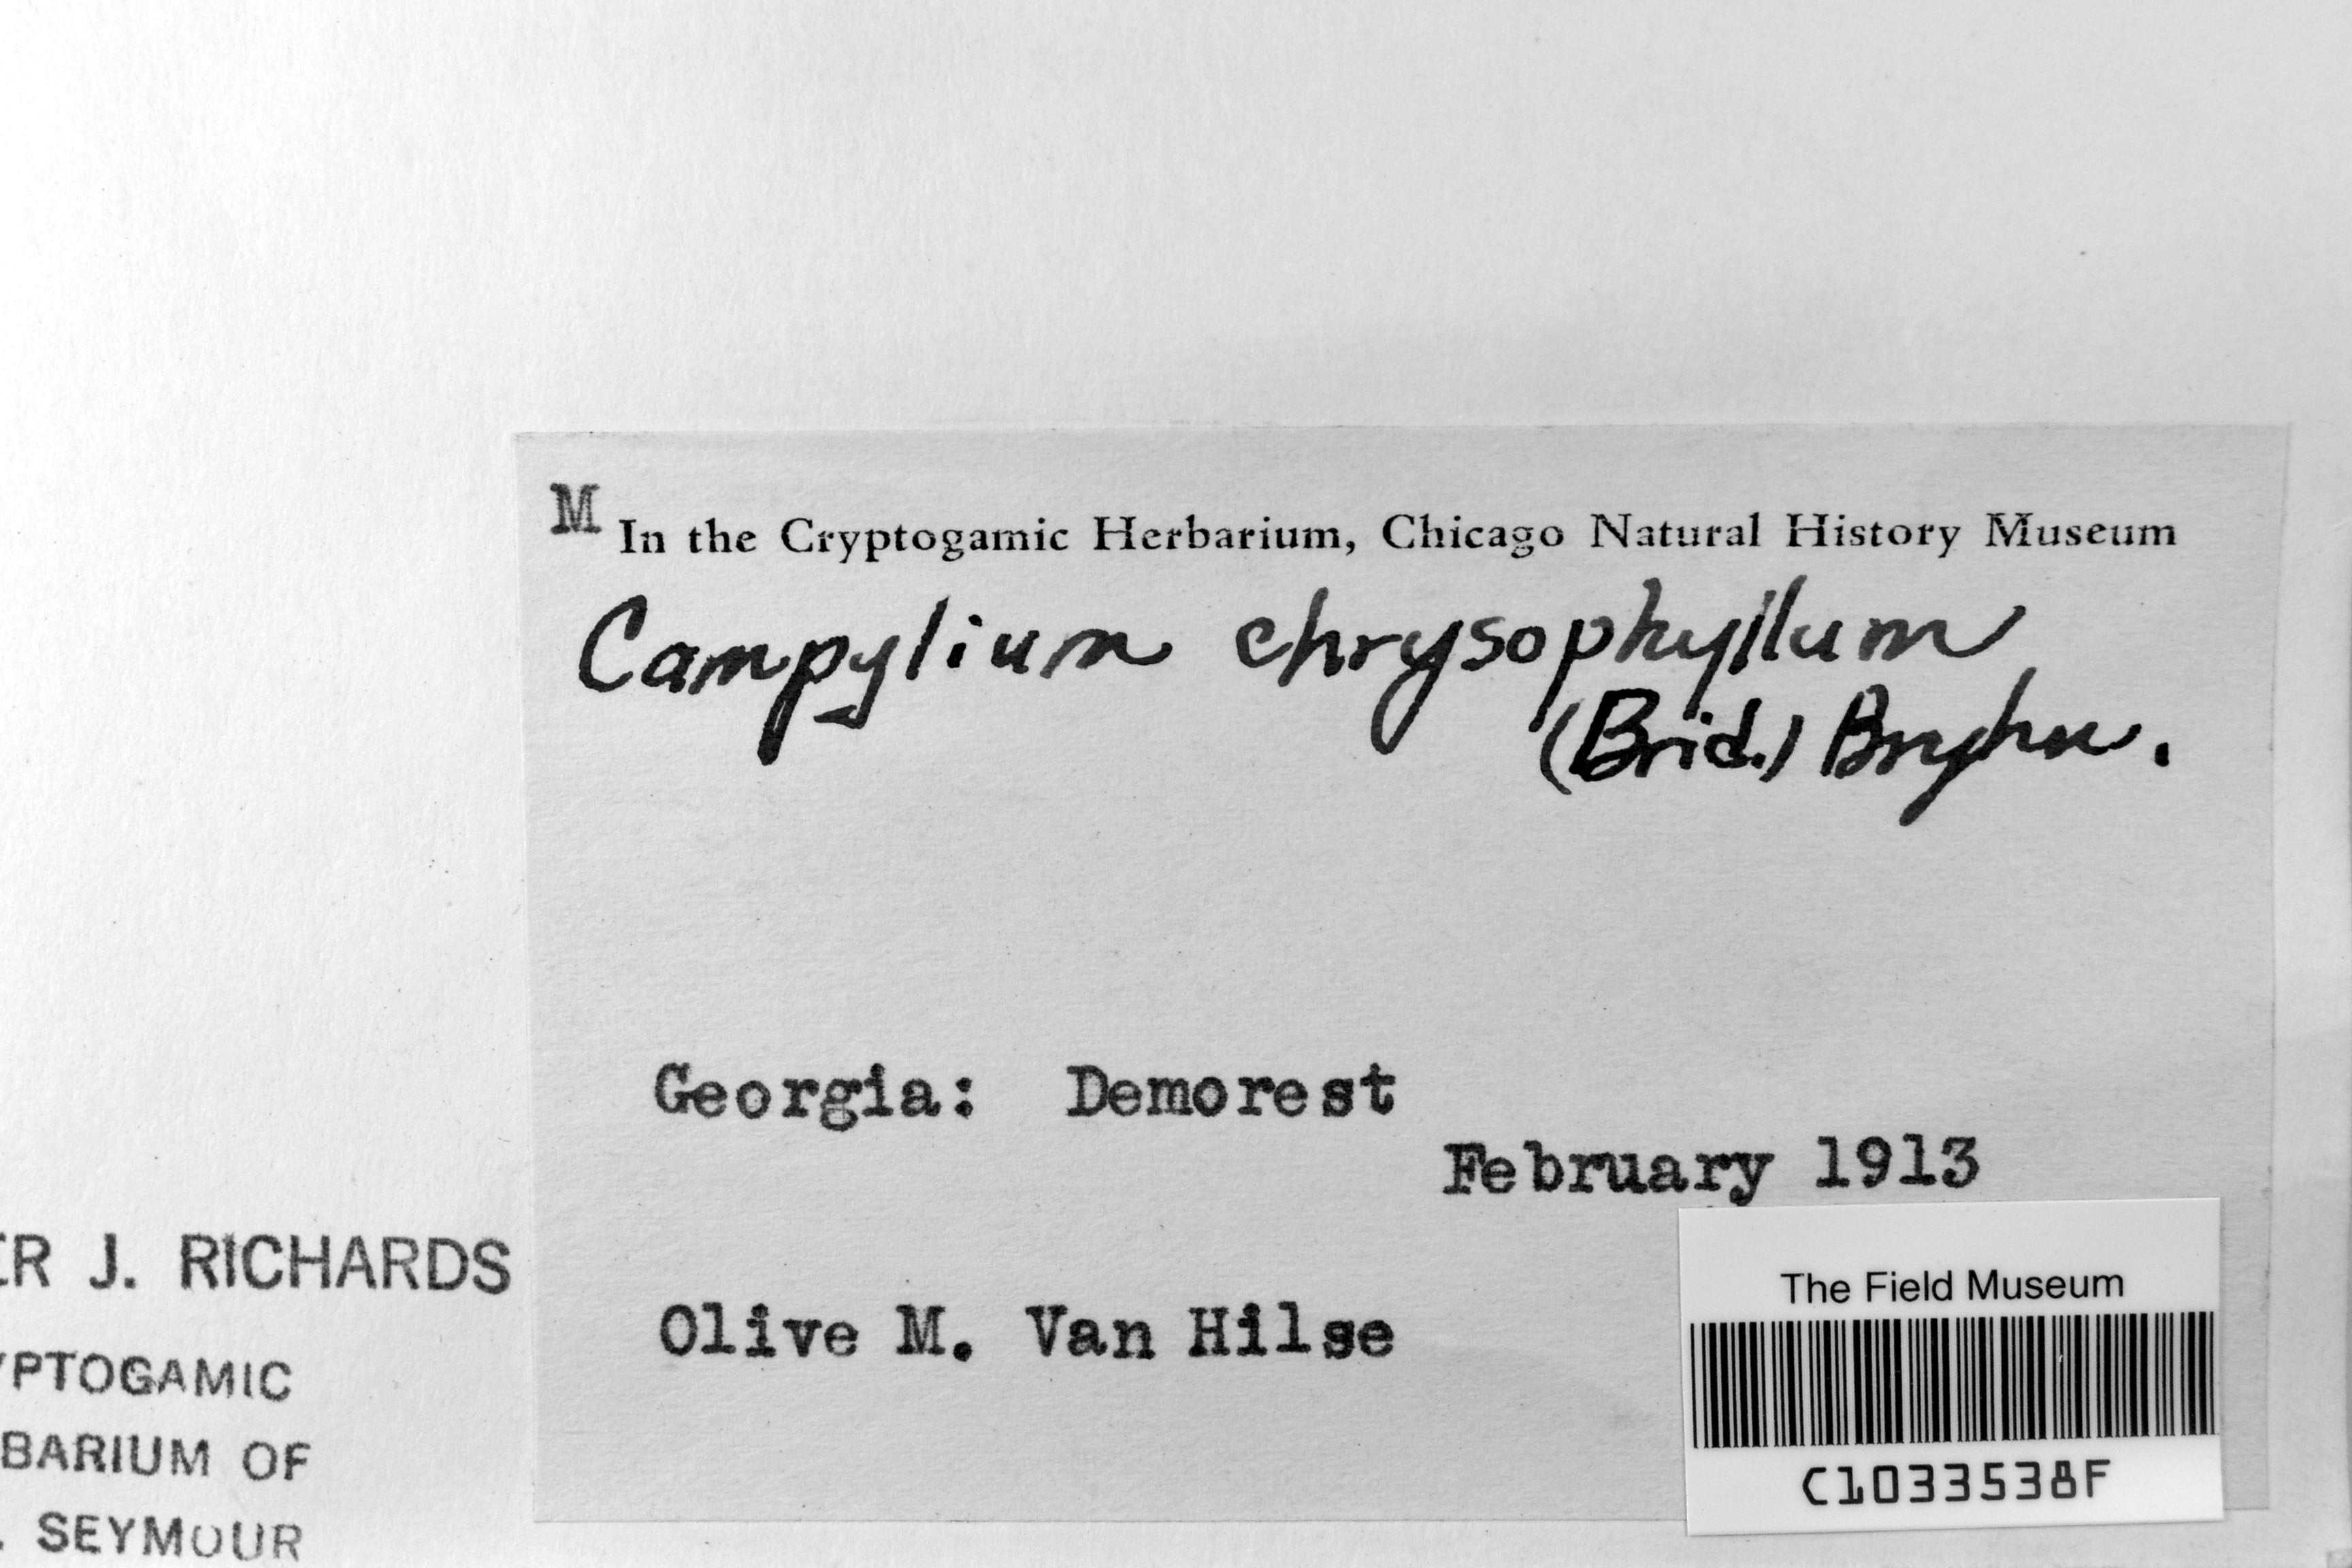 M In the Cryptogamic Herbarium, Chicago Natural History Museum
Campylium chrysophyllum
(Brid.) Bryhn.
Georgia: Demorest
February 1913
Olive M. Van Hilse
The Field Museum
C1033538F
ER J. RICHARDS
YPTOGAMIC
BARIUM OF
. SEYMOUR